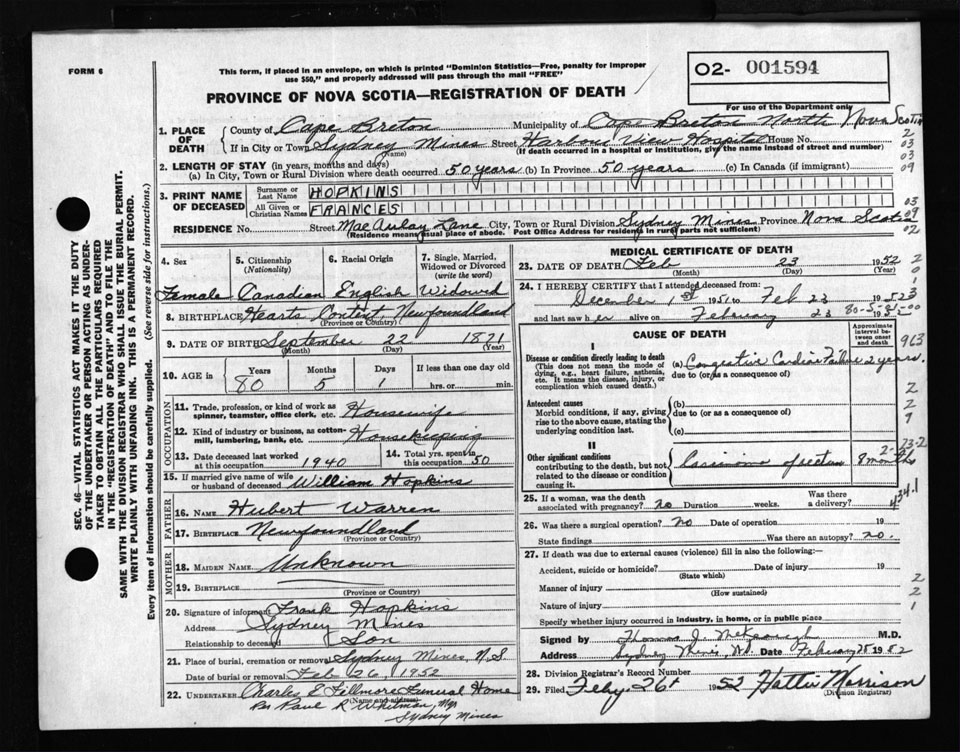 FORM 6
This form, if placed in an envelope, on which is printed "Dominion Statistics—Free, penalty for improper
use $50," and properly addressed will pass through the mail "FREE"
02- 001594
PROVINCE OF NOVA SCOTIA—REGISTRATION OF DEATH
For use of the Department only
1. PLACE OF DEATH
County of Cape Breton Municipality of Cape Breton North Nova Scotia
If in City or Town Sydney Mines Street Harbour View Hospital House No.
(Name) (If death occurred in a hospital or institution, give the name instead of street and number)
2. LENGTH OF STAY (in years, months and days)
(a) In City, Town or Rural Division where death occurred 50 years (b) In Province 50 years (c) In Canada (if immigrant)
3. PRINT NAME OF DECEASED
Surname or Last Name HOPKINS
All Given or Christian Names FRANCES
RESIDENCE No. Street MacAulay Lane City, Town or Rural Division Sydney Mines Province Nova Scotia
(Residence means usual place of abode. Post Office Address for residents in rural parts not sufficient)
2
03
03
09
03
09
02
4. Sex 5. Citizenship (Nationality) 6. Racial Origin 7. Single, Married, Widowed or Divorced (write the word)
Female Canadian English Widowed
8. BIRTHPLACE Hearts Content, Newfoundland
(Province or Country)
9. DATE OF BIRTH September 22 1871
(Month) (Day) (Year)
10. AGE in Years Months Days If less than one day old
80 5 1 hrs. or min.
OCCUPATION
11. Trade, profession, or kind of work as spinner, teamster, office clerk, etc. Housewife
12. Kind of industry or business, as cotton-mill, lumbering, bank, etc. Housekeeping
13. Date deceased last worked at this occupation 1940 14. Total yrs. spent in this occupation 50
15. If married give name of wife or husband of deceased William Hopkins
FATHER
16. Name Hubert Warren
17. Birthplace Newfoundland
(Province or Country)
MOTHER
18. Maiden Name Unknown
19. Birthplace
(Province or Country)
20. Signature of informant Frank Hopkins
Address Sydney Mines
Relationship to deceased Son
21. Place of burial, cremation or removal Sydney Mines, N.S.
Date of burial or removal Feb 26, 1952
22. Undertaker Charles E Fillmore Funeral Home
(Name and address)
Per Paul R Whitman, Mgr
Sydney Mines
MEDICAL CERTIFICATE OF DEATH
23. DATE OF DEATH Feb 23 1952
(Month) (Day) (Year)
24. I HEREBY CERTIFY that I attended deceased from:
December 1st 1951 to Feb 23 1952
and last saw her alive on February 23 1952
80-5-
CAUSE OF DEATH
Approximate interval between onset and death
I
Disease or condition directly leading to death
(This does not mean the mode of dying, e.g., heart failure, asthenia, etc. It means the disease, injury, or complication which caused death.)
(a) Congestive Cardiac Failure 2 years.
due to (or as a consequence of)
Antecedent causes
Morbid conditions, if any, giving rise to the above cause, stating the underlying condition last.
(b)
due to (or as a consequence of)
(c)
II
Other significant conditions
contributing to the death, but not related to the disease or condition causing it.
Carcinoma of rectum 8 months
963
434.1
25. If a woman, was the death associated with pregnancy? no Duration weeks. Was there a delivery?
26. Was there a surgical operation? no Date of operation 19
State findings Was there an autopsy? no.
27. If death was due to external causes (violence) fill in also the following:—
Accident, suicide or homicide? Date of injury 19
(State which)
Manner of injury
(How sustained)
Nature of injury
Specify whether injury occurred in industry, in home, or in public place
Signed by Thomas J. McKeough M.D.
Address Sydney Mines, NS. Date February 25 1952
28. Division Registrar's Record Number
29. Filed Feby 26th 1952 Hattie Harrison
(Division Registrar)
SEC. 46—VITAL STATISTICS ACT MAKES IT THE DUTY
OF THE UNDERTAKER OR PERSON ACTING AS UNDER-
TAKER TO OBTAIN ALL THE PARTICULARS REQUIRED
IN THE "REGISTRATION OF DEATH" AND TO FILE THE
SAME WITH THE DIVISION REGISTRAR WHO SHALL ISSUE THE BURIAL PERMIT.
WRITE PLAINLY WITH UNFADING INK. THIS IS A PERMANENT RECORD.
Every item of information should be carefully supplied. (See reverse side for instructions.)